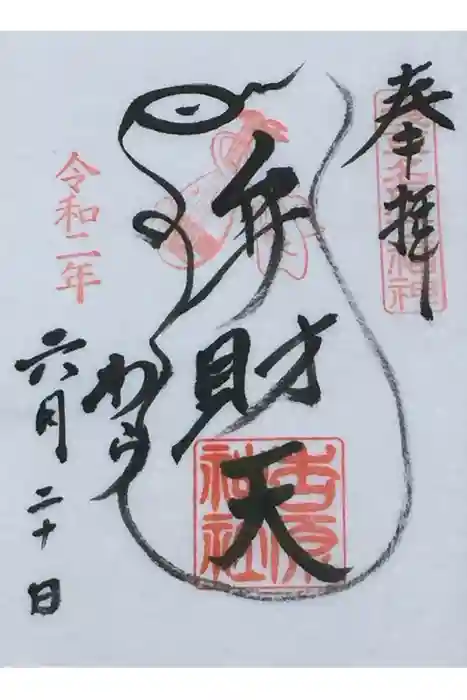 奉拝
弁財天
吉原
神社
令和二年
六月二十日